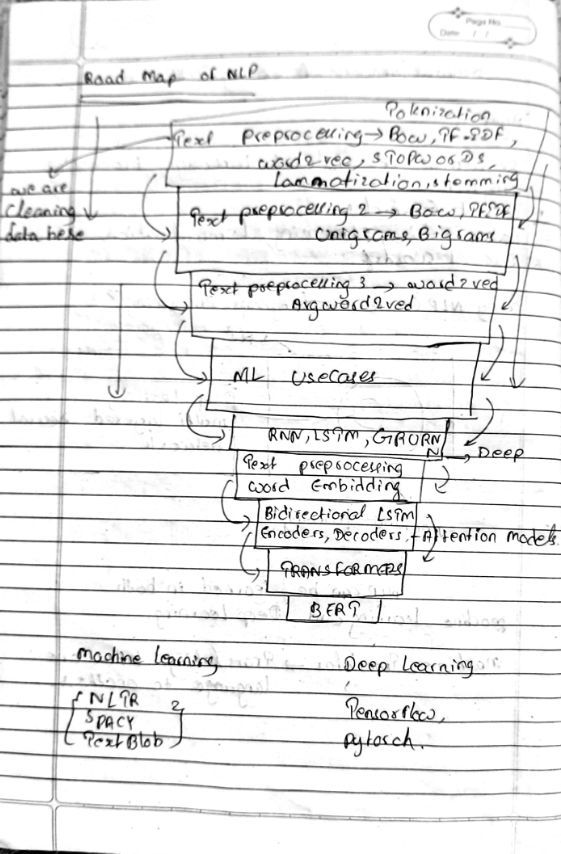 Page No.
Date: / /
Road Map of NLP
Toknization
Text preprocessing → Bow, TF-IDF,
word2vec, STOPWORDS,
Lammatization, stemming
we are
cleaning
data here
Text preprocessing 2 → Bow, TFIDF
Unigrams, Bigrams
Text preprocessing 3 → word2ved
Avgword2ved
ML Usecases
RNN, LSTM, GRURN
N → Deep
Text preprocessing
word Embidding
Bidirectional LSTM
Encoders, Decoders, Attention models
TRANSFORMERS
BERT
Machine learning
Deep Learning
NLTK
SPACY
TextBlob
Tensorflow,
pytorch.